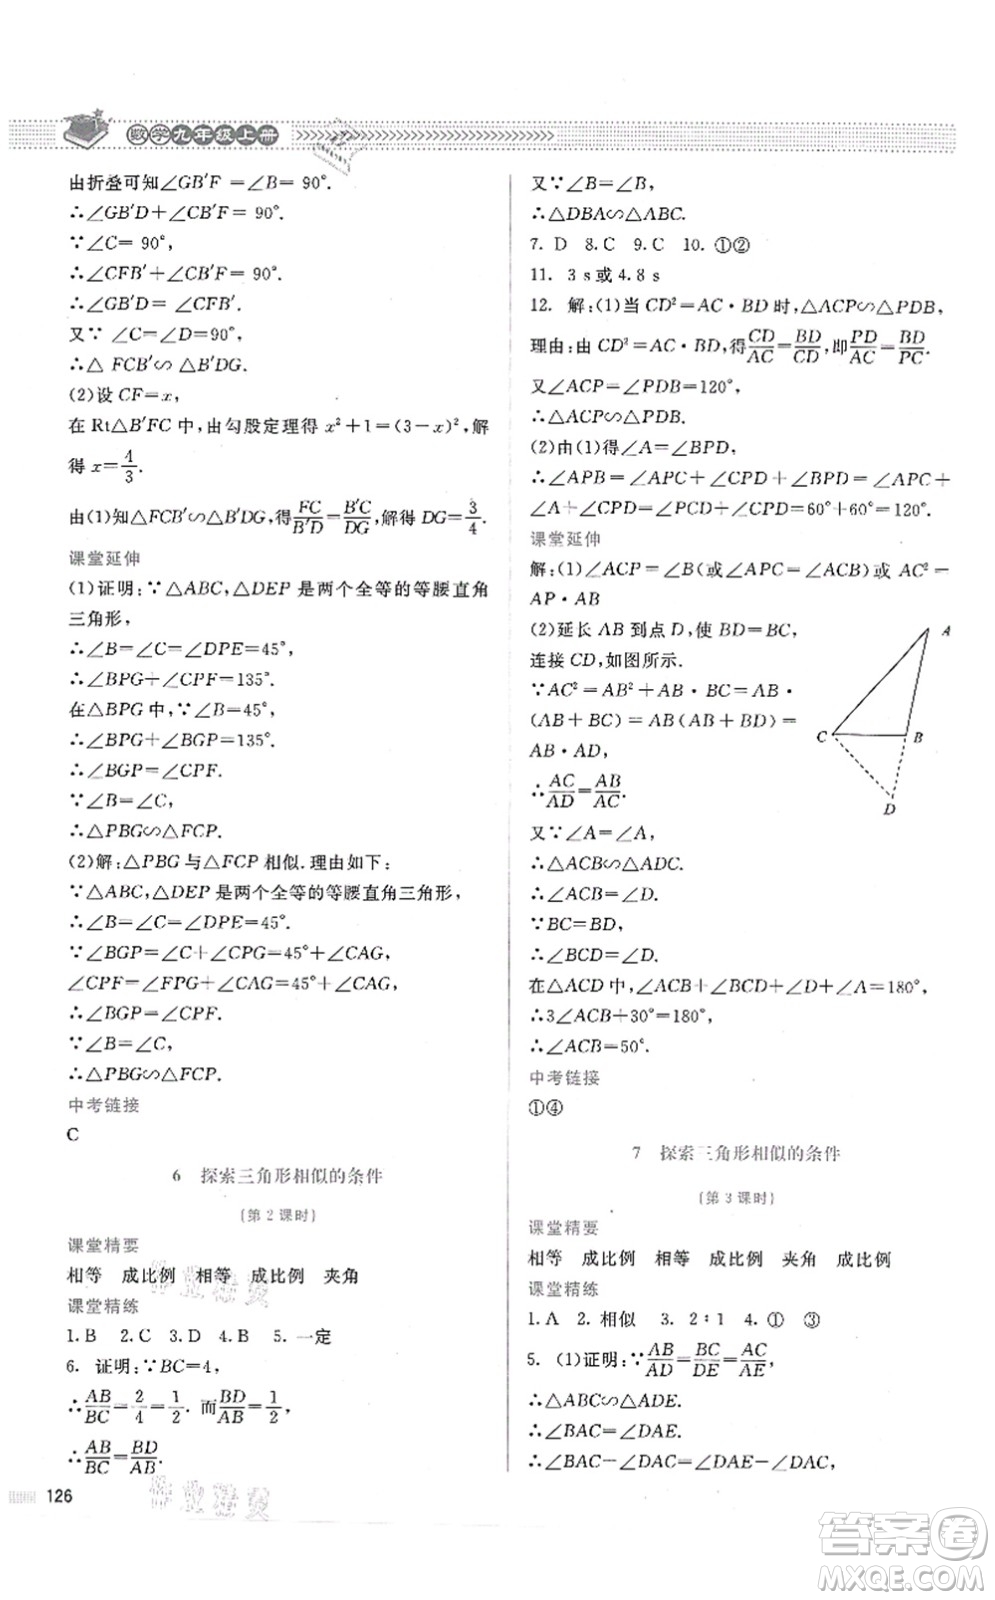 数学九年级上册
由折叠可知∠GB′F =∠B= 90°.
∴∠GB′D+∠CB′F= 90°.
∵∠C= 90°,
∴∠CFB′+∠CB′F=90°.
∴∠GB′D =∠CFB′.
又∵ ∠C=∠D=90°,
∴△ FCB′∽ △B′DG.
(2)设 CF=x,
在 Rt△B′FC 中,由勾股定理得 x²+1=(3-x)²,解
得 x=4/3.
由(1)知△FCB′∽△B′DG,得FC/B′D=B′C/DG,解得 DG=3/4.
课堂延伸
(1)证明:∵△ABC,△DEP 是两个全等的等腰直角
三角形,
∴∠B=∠C=∠DPE=45°,
∴∠BPG+∠CPF=135°.
在△BPG 中,∵∠B=45°,
∴∠BPG+∠BGP=135°.
∴∠BGP=∠CPF.
∵∠B=∠C,
∴△PBG∽△FCP.
(2)解:△PBG 与△FCP 相似.理由如下:
∵△ABC,△DEP 是两个全等的等腰直角三角形,
∴∠B=∠C=∠DPE=45°.
∵∠BGP=∠C+∠CPG=45°+∠CAG,
∠CPF=∠CPG+∠CAG=45°+∠CAG,
∴∠BGP=∠CPF.
∵∠B=∠C,
∴△PBG∽△FCP.
中考链接
C
6 探索三角形相似的条件
(第 2 课时)
课堂精要
相等 成比例 相等 成比例 夹角
课堂精练
1.B 2.C 3.D 4.B 5.一定
6. 证明:∵BC=4,
∴AB/BC=2/4=1/2. 而BD/AB=1/2,
∴AB/BC=BD/AB.
126
又∵∠B=∠B,
∴△DBA∽△ABC.
7. D 8.C 9.C 10. ①②
11. 3 s或4.8 s
12. 解:(1)当 CD²=AC·BD时,△ACP∽△PDB,
理由:由 CD²=AC·BD,得CD/AC=BD/CD,即PD/AC=BD/PC.
又∠ACP=∠PDB=120°,
∴△ACP∽△PDB.
(2)由(1)得∠A=∠BPD,
∴∠APB=∠APC+∠CPD+∠BPD=∠APC+
∠A+∠CPD=∠PCD+∠CPD=60°+60°=120°.
课堂延伸
解:(1)∠ACP=∠B(或∠APC=∠ACB)或 AC²=
AP·AB
(2)延长 AB 到点 D,使 BD=BC,
连接 CD,如图所示.
∵AC²=AB²+AB·BC=AB·
(AB+BC)=AB(AB+BD)=
AB·AD,
∴AC/AD=AB/AC.
又∵∠A=∠A,
∴△ACB∽△ADC.
∴∠ACB=∠D.
∵BC=BD,
∴∠BCD=∠D.
在△ACD 中,∠ACB+∠BCD+∠D+∠A=180°,
∴3∠ACB+30°=180°,
∴∠ACB=50°.
A
C
B
D
中考链接
①④
7 探索三角形相似的条件
(第 3 课时)
课堂精要
相等 成比例 相等 成比例 夹角 成比例
课堂精练
1.A 2. 相似 3. 2∶1 4.① ③
5. (1)证明:∵AB/AD=BC/DE=AC/AE,
∴△ABC∽△ADE.
∴∠BAC=∠DAE.
∴∠BAC-∠DAC=∠DAE-∠DAC,
答案卷
MXQE.COM